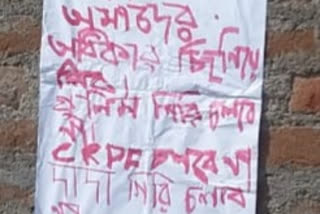 আমাদের
অধিকার ছিনিয়ে
নিবো
পুলিশ গিরি চলবে
না
CRPF চলবে না
দাদা গিরি চলবে